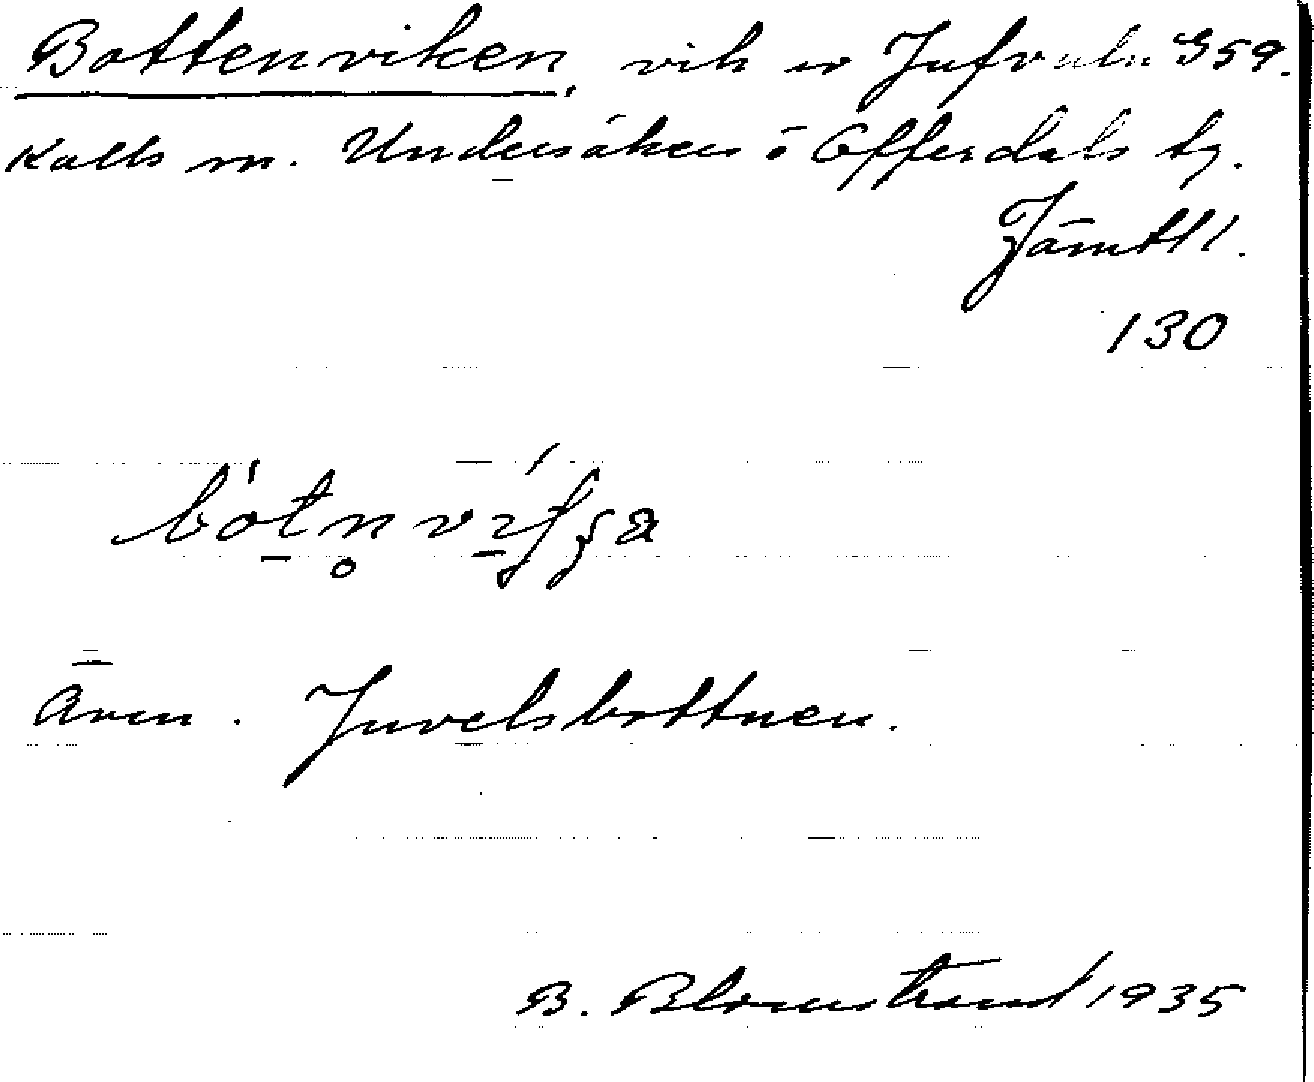 Bottenviken, vik av Jufvuln G59.
Kalls sn. Undersåkers o Offerdals tg.
Jämtl l.
130
bótn̥ví
Även. Juvelsbottnen.
B. Blomstrand 1935